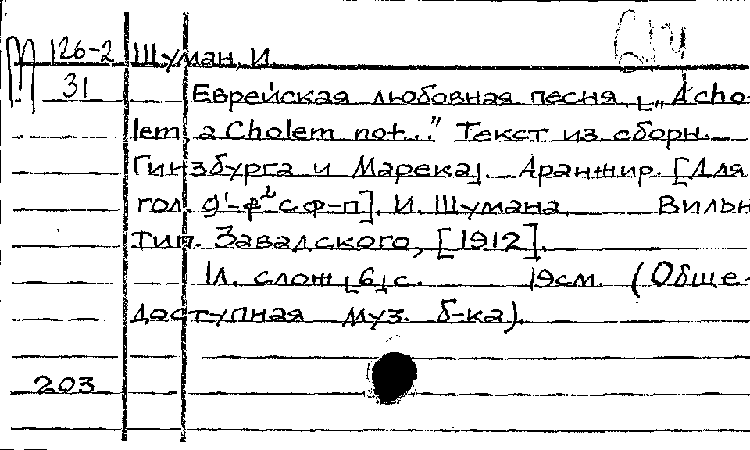 М 126-2 Шуман, И.
31 Еврейская любовная песня [„A cho-
lem, a Cholem not.." Текст из сборн.
Гинзбурга и Марека]. Аранжир. [Для
гол. g'-f² с ф-п]. И. Шумана. Вильн
тип. Завадского, [1912].
1л. слож [6] с. 19см. (Обще-
доступная муз. б-ка).
203